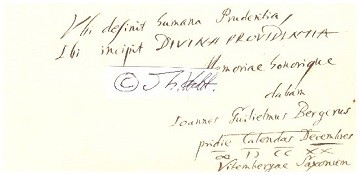 Ubi definit humana Prudentia,
Ibi incipit DIVINA PROVIDENTIA
Memoriae honorique
dabam
Ioannes Guilielmus Bergerus
pridie Calendas Decembres
Vitembergae Saxonum